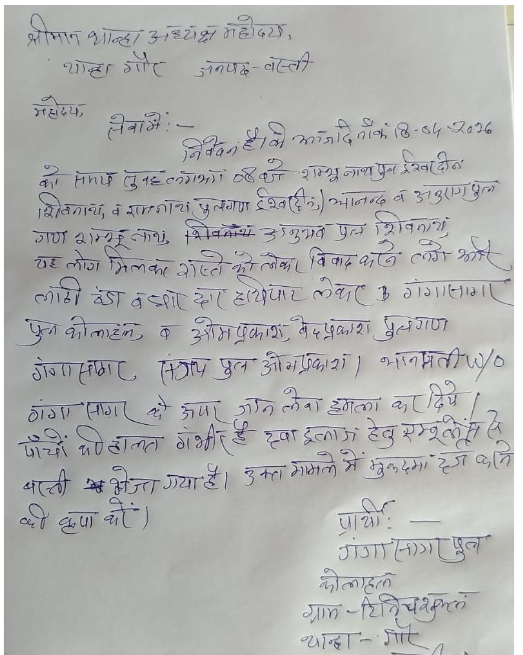 श्रीमान थान्हा अध्यक्ष महोदय,
थान्हा गौर जनपद-बस्ती
महोदय,
सेवामें:-
निवेदन है कि आज दिनांक 18-04-2026
को समय सुबह लगभग 08 बजे शम्भू नाथ पुत्र ईश्वरदीन
शिवनाथ, व रामनाथ पुत्रगण ईश्वरदीन, आनन्द व अनुराग पुत्र
गण शम्भू नाथ, शिवनाथ अनुभव पुत्र शिवनाथ,
यह लोग मिलकर रास्ते को लेकर विवाद करने लगे और
लाठी डंडा व धार दार हथियार लेकर गंगासागर
पुत्र कोलाहल, व ओमप्रकाश, वेदप्रकाश पुत्रगण
गंगासागर, संजय पुत्र ओमप्रकाश। भानमती W/O
गंगा सागर के ऊपर जान लेवा हमला कर दिये।
पाँचों की हालत गंभीर है दवा इलाज हेतु एम्बूलेंस से
बस्ती भेजा गया है। उक्त मामले में मुकदमा दर्ज करने
की कृपा करें।
प्रार्थी:-
गंगासागर पुत्र
कोलाहल
ग्राम-
थान्हा-गौर